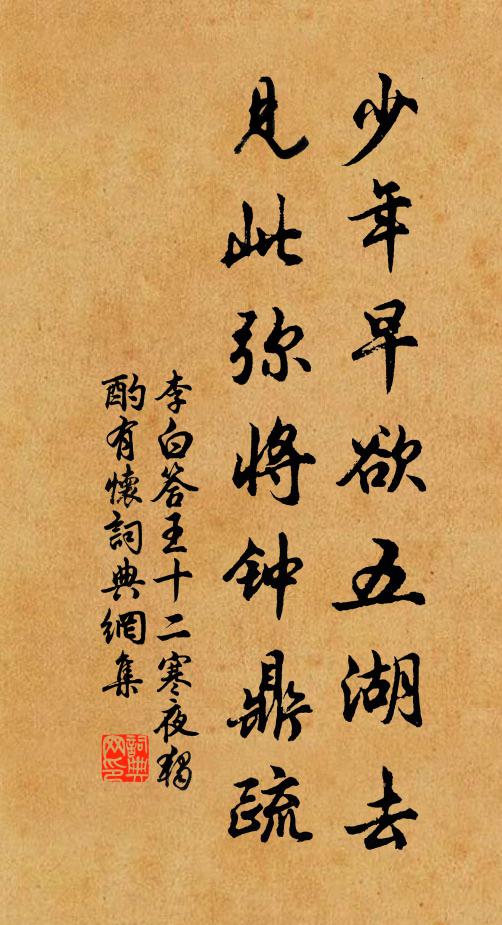 少年早欲五湖去
见此弥将钟鼎疏
李白答王十二寒夜獨
酌有懷詞典網集
詞典
网印